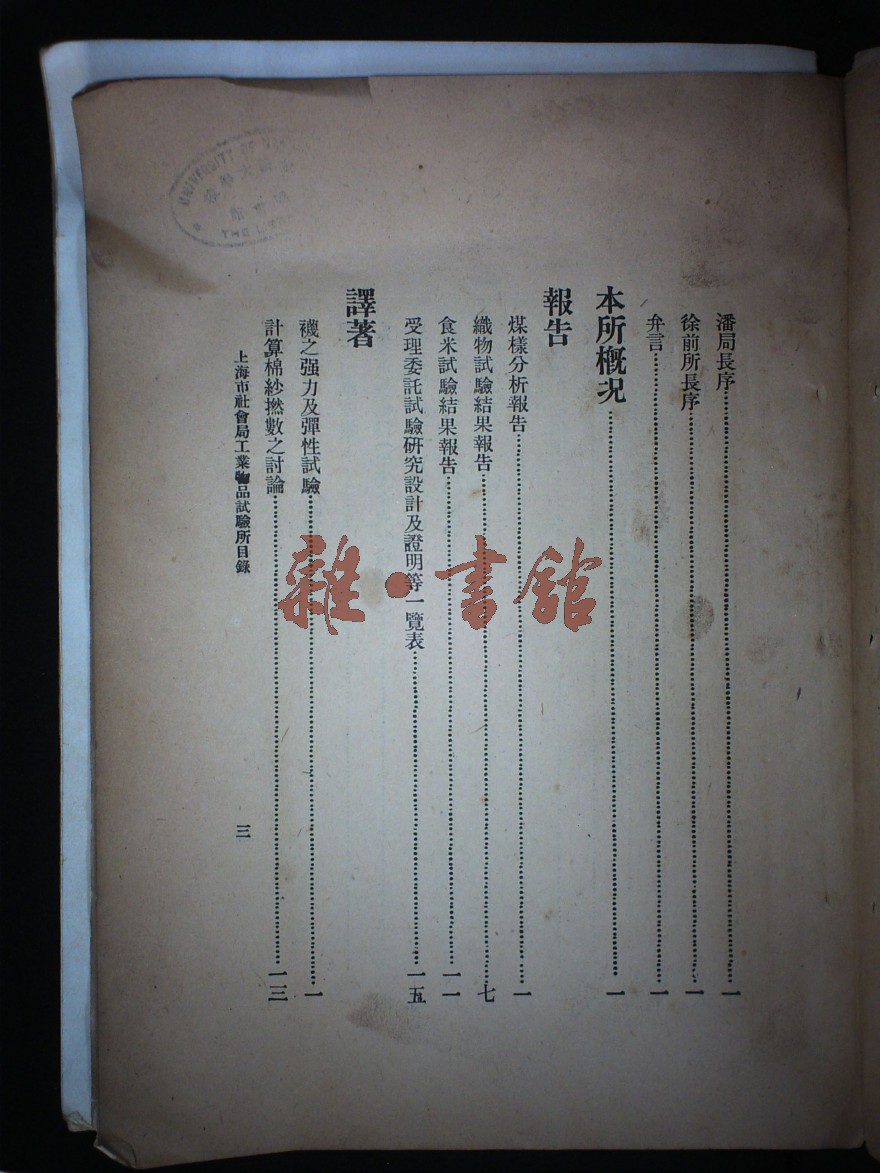 潘局長序……一
徐前所長序……一
弁言……一
本所概況……一
報告
煤樣分析報告……一
織物試驗結果報告……七
食米試驗結果報告……一一
受理委託試驗研究設計及證明等一覽表……一五
譯著
襪之强力及彈性試驗……一
計算棉紗撚數之討論……一三
上海市社會局工業物品試驗所目錄
三
雜·書館
UNIVERSITY OF